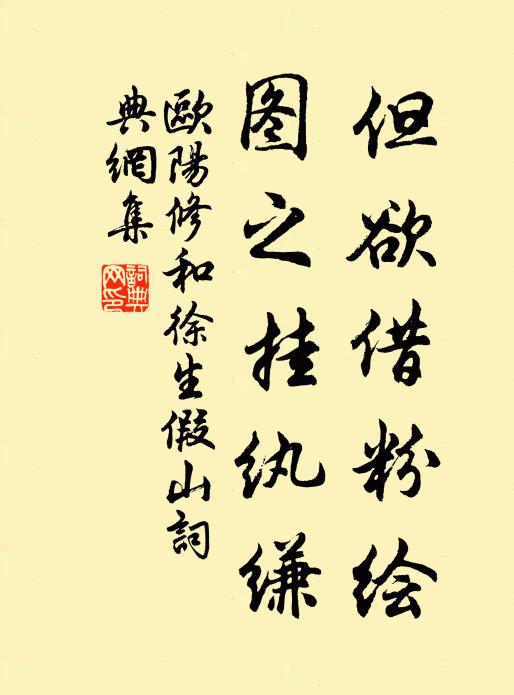 但欲借粉绘
图之挂纨缣
歐陽修和徐生假山詞
典網集
詞典網印